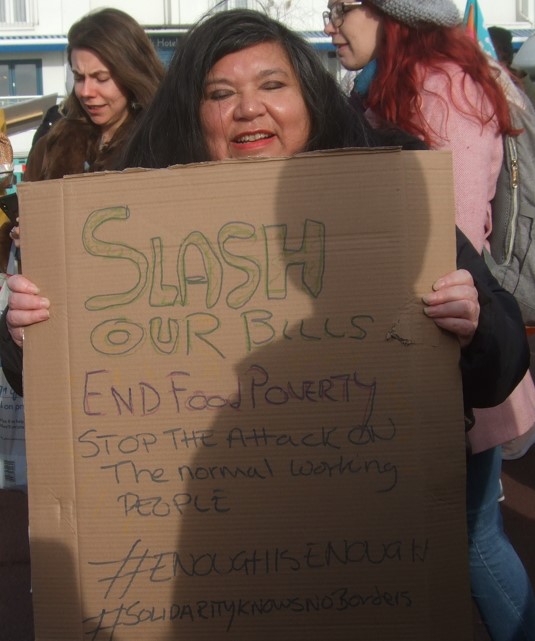 Hotel
SLASH
OUR BILLS
END Food POVERTY
STOP THE Attack ON
The normal working
PEOPLE
#ENOUGHISENOUGH
#SOLIDARITYKNOWSNOBorders